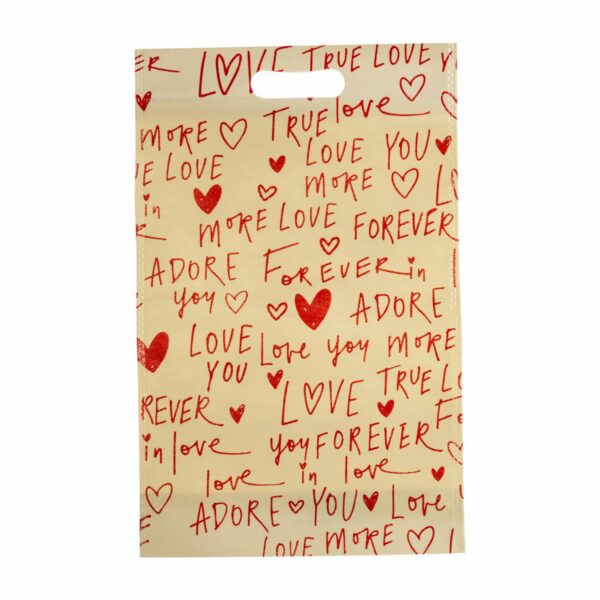 EVER LOVE TRUE LOVE
TRUE love
MORE LOVE YOU
LOVE MORE
in MORE LOVE FOREVER
ADORE FOREVER in
you ADORE
LOVE Love you MORE
YOU LOVE TRUE LO
FOREVER FO
in love you FOREVER in
love in love
ADORE YOU Love
LOVE MORE